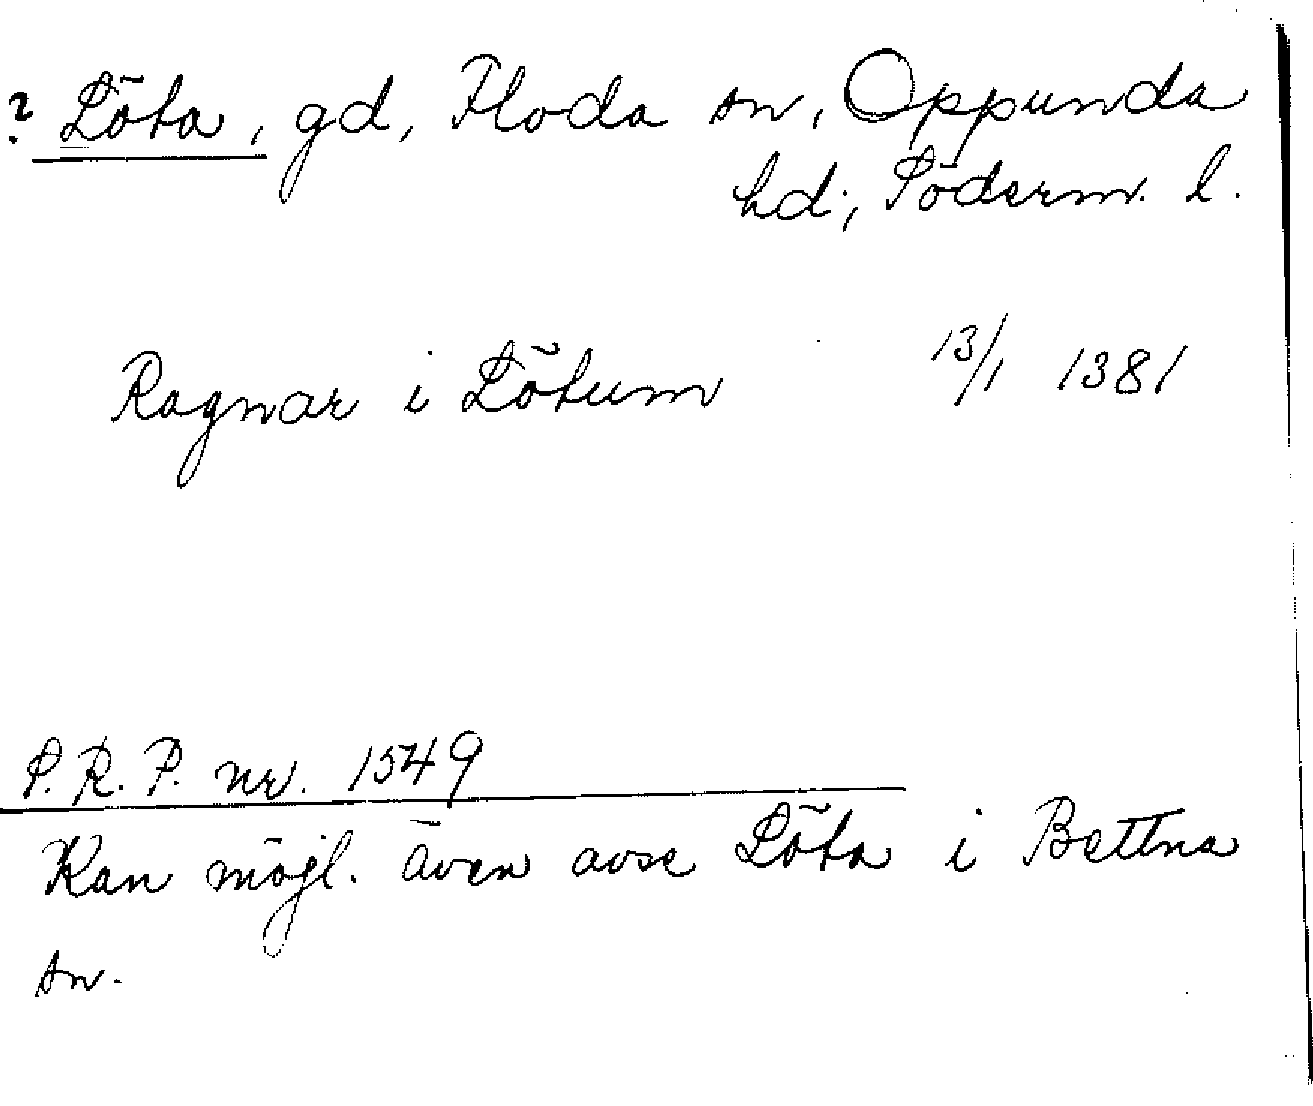 ? Löta, gd, Floda sn, Oppunda
hd:, Söderm. l.
Ragnar i Lötum 13/1 1381
S.R.P. nr. 1549
Kan möjl. även avse Löta i Bettna
sn.